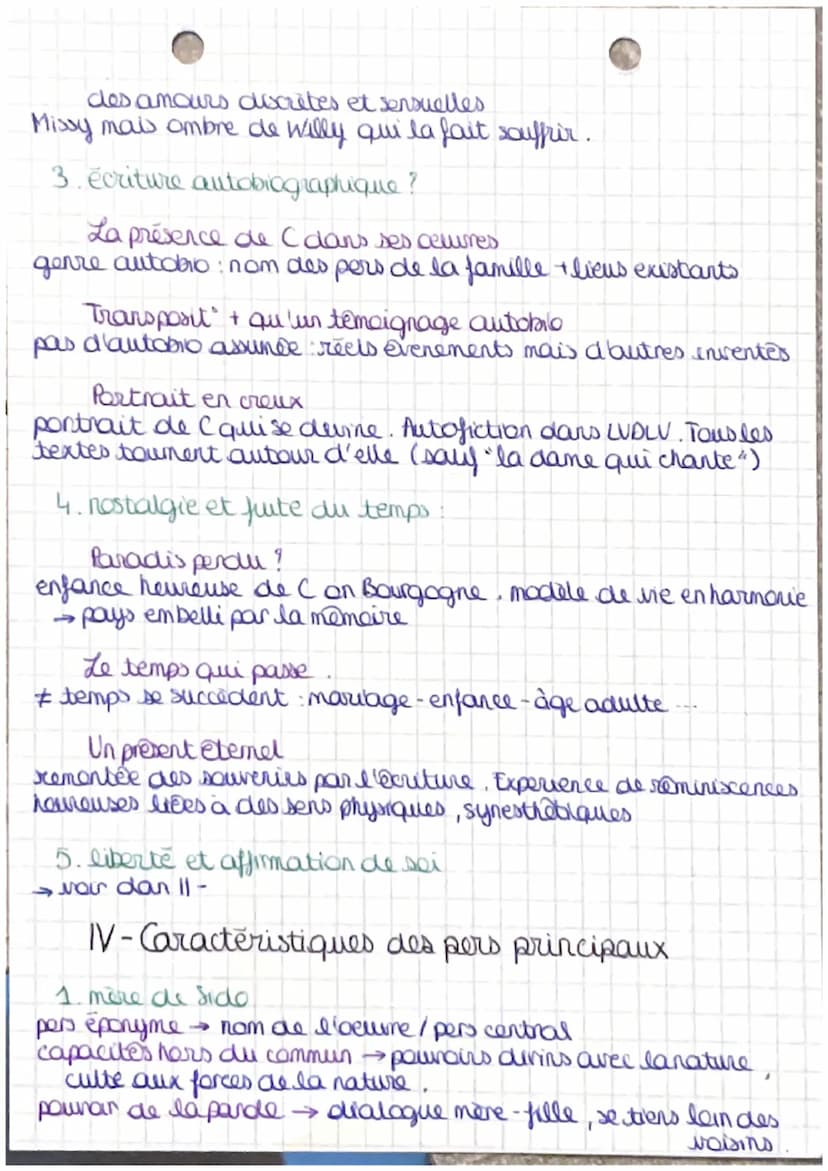 des amours discrètes et sensuelles
Missy mais ombre de Willy qui la fait souffrir.
3. écriture autobiographique ?
La présence de C dans ses oeuvres
genre autobio : nom des pers de la famille + lieus existants
Transposit° + qu'un témoignage autobio
pas d'autobio assumée : réels évenements mais d'autres inventés
Portrait en creux
portrait de C qui se devine. Autofiction dans LVDLV. Tous les
textes tournent autour d'elle (sauf "la dame qui chante")
4. nostalgie et fuite du temps :
Paradis perdu ?
enfance heureuse de C en Bourgogne, modèle de vie en harmonie
→ pays embelli par la mémoire
Le temps qui passe.
≠ temps se succèdent : mariage - enfance - âge adulte ...
Un présent éternel
remontée des souvenirs par l'écriture. Expérience de réminiscences
heureuses liées à des sens physiques, synesthétiques
5. liberté et affirmation de soi
→ voir dan II -
IV - Caractéristiques des pers principaux
1. mère de Sido
pers éponyme → nom de l'oeuvre / pers central
capacités hors du commun → pouvoirs divins avec la nature,
culte aux forces de la nature.
pouvoir de la parole → dialogue mère-fille, se tiens loin des
voisins.